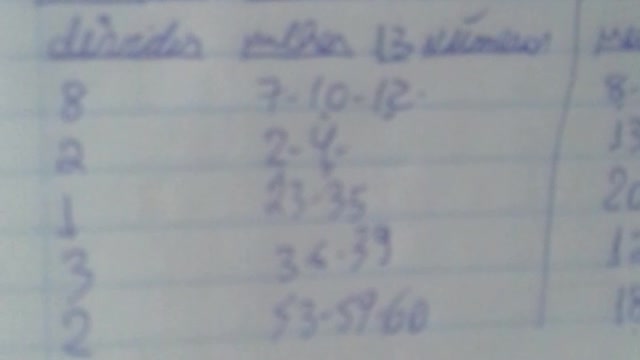 dúvidas melhor 13 números
8 7-10-12- 8-
2 2-4- 13
1 23-35 20
3 36-39 12
2 53-59-60 18